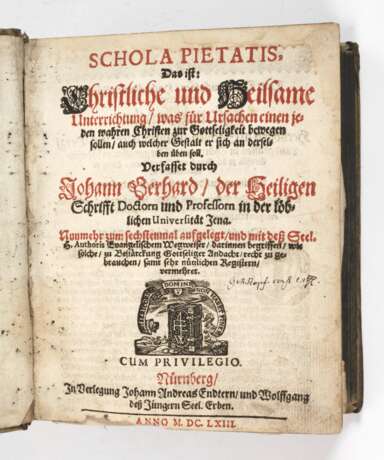 SCHOLA PIETATIS,
Das ist:
Christliche und Heilsame
Unterrichtung / was für Ursachen einen je-
den wahren Christen zur Gottseligkeit bewegen
sollen / auch welcher Gestalt er sich an dersel-
ben üben soll.
Verfasset durch
Johann Gerhard / der Heiligen
Schrifft Doctorn und Professorn in der löb-
lichen Universität Jena.
Nunmehr zum sechstenmal auffgelegt / und mit deß Seel.
H. Authoris Evangelischem Wegweiser / darinnen begriffen / wie
solche / zu Bestärckung Gottseliger Andacht / recht zu ge-
brauchen / samt sehr nützlichen Registern /
vermehret.
DOMINI
CUM PRIVILEGIO.
Nürnberg /
In Verlegung Johann Andreas Endtern / und Wolffgang
deß Jüngern Seel. Erben.
ANNO M. DC. LXIII.